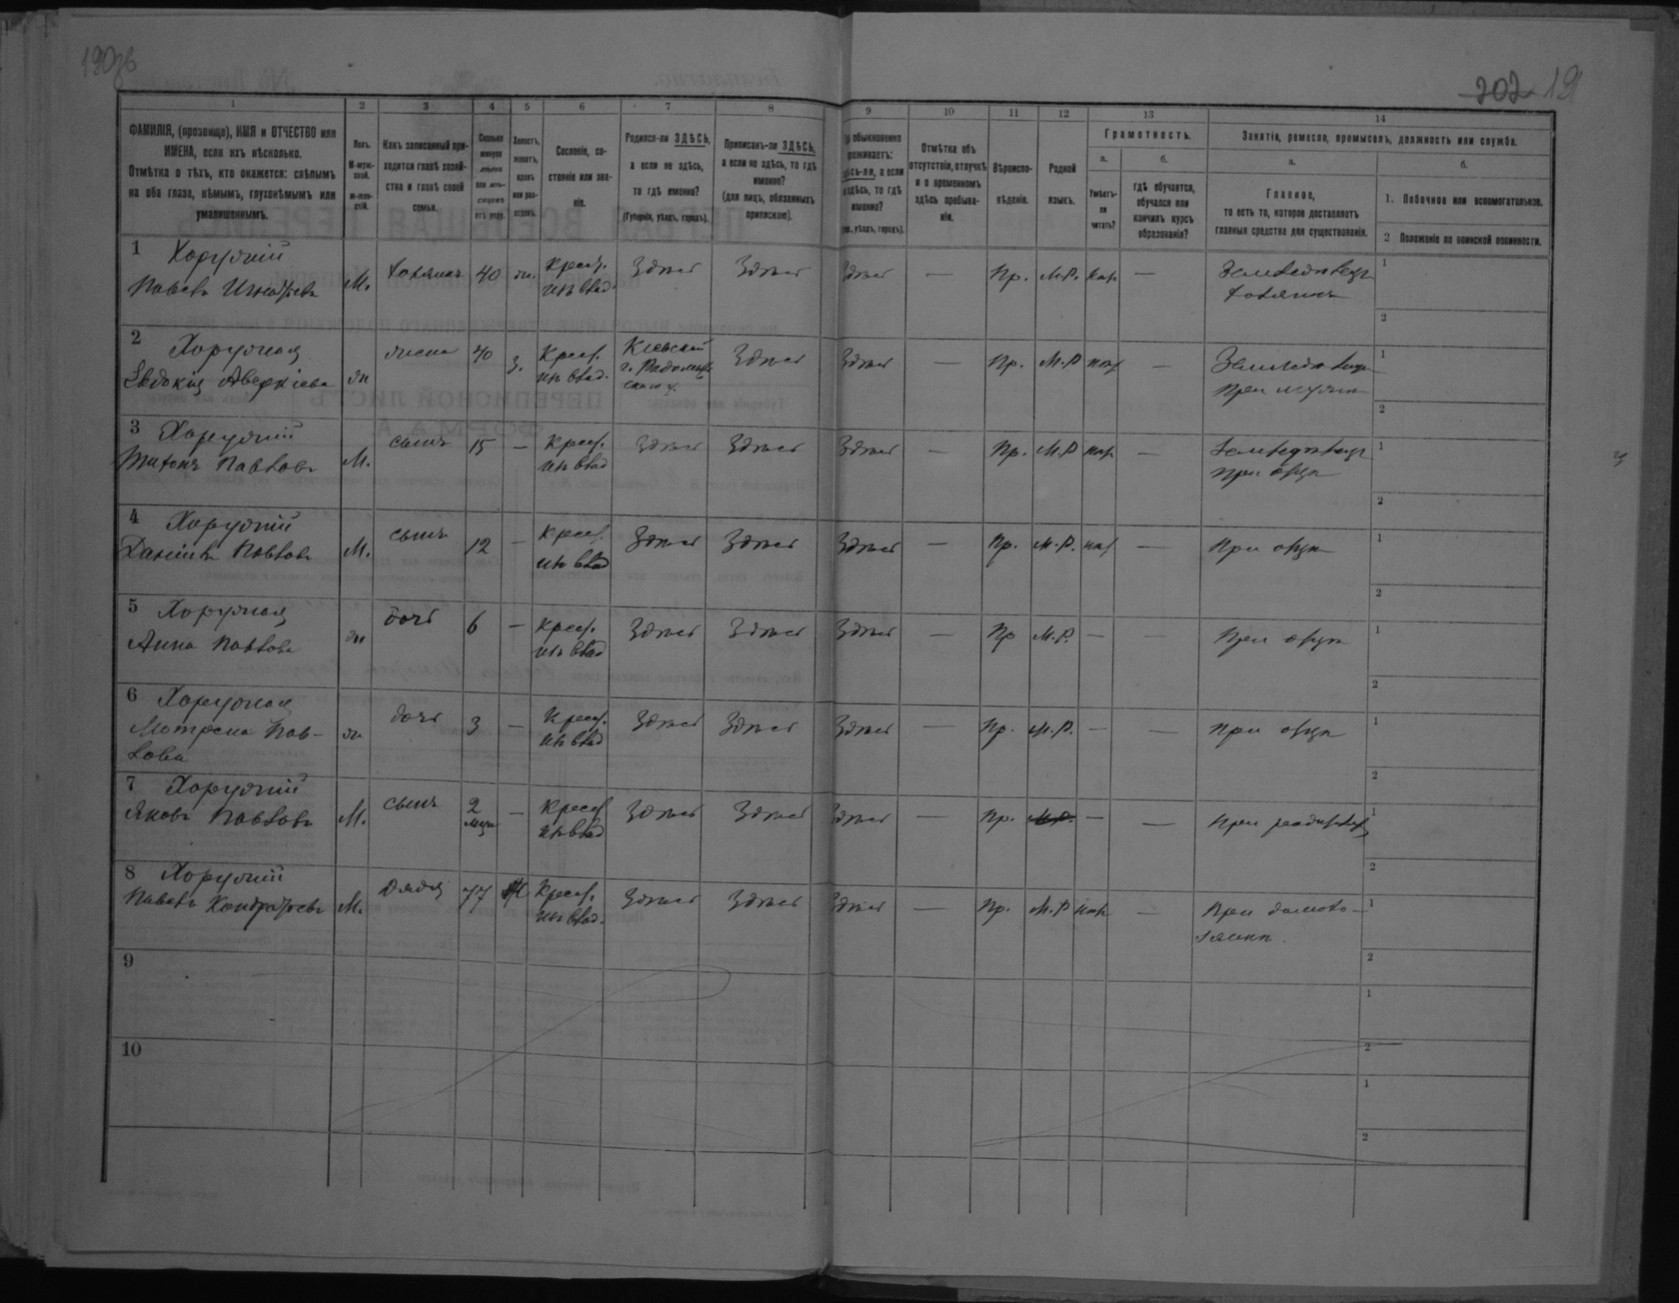 190об
202 19
1 2 3 4 5 6 7 8 9 10 11 12 13 14
ФАМИЛІЯ, (прозвище), ИМЯ и ОТЧЕСТВО или
ИМЕНА, если ихъ нѣсколько.
Отмѣтка о тѣхъ, кто окажется: слѣпымъ
на оба глаза, нѣмымъ, глухонѣмымъ или
умалишеннымъ.
Полъ.
М-муж-
ской.
Ж-жен-
скій.
Какъ записанный при-
ходится главѣ хозяй-
ства и главѣ своей
семьи.
Сколько
минуло
лѣтъ
или мѣ-
сяцевъ
отъ роду.
Холостъ,
женатъ,
вдовъ
или раз-
веденъ.
Сословіе, со-
стояніе или зва-
ніе.
Родился-ли ЗДѢСЬ,
а если не здѣсь,
то гдѣ именно?
(Губернія, уѣздъ, городъ).
Приписанъ-ли ЗДѢСЬ,
а если не здѣсь, то гдѣ
именно?
(для лицъ, обязанныхъ
припискою).
обыкновенно
проживаетъ:
здѣсь-ли, а если
не здѣсь, то гдѣ
именно?
(губ., уѣздъ, городъ).
Отмѣтка объ
отсутствіи, отлучкѣ
и о временномъ
здѣсь пребыва-
ніи.
Вѣроиспо-
вѣданіе.
Родной
языкъ.
Грамотность.
а.
Умѣетъ-
ли
читать?
б.
гдѣ обучается,
обучался или
кончилъ курсъ
образованія?
Занятія, ремесло, промыселъ, должность или служба.
а.
Главное,
то есть то, которое доставляетъ
главныя средства для существованія.
б.
1. Побочное или вспомогательное.
2 Положеніе по воинской повинности.
1 Хоружій
Павелъ Игнатьевъ М. хозяинъ 40 ж. Крест. изъ влад. Здѣсь Здѣсь Здѣсь — Пр. М.Р. нѣт — Земледѣлецъ
хозяинъ
1
2
2 Хоружая
Евдокія Аверкіева ж жена 40 з. Крест. изъ влад. Кіевской г. Радомысльскаго у. Здѣсь Здѣсь — Пр. М.Р нѣт — Земледѣлецъ
при мужѣ
1
2
3 Хоружій
Тихонъ Павловъ М. сынъ 15 — Крест. изъ влад Здѣсь Здѣсь Здѣсь — Пр. М.Р нѣт — Земледѣлецъ
при отцѣ
1
2
4 Хоружій
Даніилъ Павловъ М. сынъ 12 — Крест. изъ влад Здѣсь Здѣсь Здѣсь — Пр. М.Р. нѣт — При отцѣ
1
2
5 Хоружая
Анна Павлова ж дочь 6 — Крест. изъ влад Здѣсь Здѣсь Здѣсь — Пр М.Р. — — При отцѣ
1
2
6 Хоружая
Мотрена Пав-
лова ж дочь 3 — Крест. изъ влад Здѣсь Здѣсь Здѣсь — Пр. М.Р. — — При отцѣ
1
2
7 Хоружій
Яковъ Павловъ М. сынъ 2 мѣс — Крест изъ влад Здѣсь Здѣсь Здѣсь Пр. М.Р. — — При родителях
1
2
8 Хоружій
Павелъ Кондратьевъ М. дядя 77 Крест. изъ влад. Здѣсь Здѣсь Здѣсь — Пр. М.Р нѣт — При домохо-
зяинѣ.
1
2
9
1
2
10
1
2